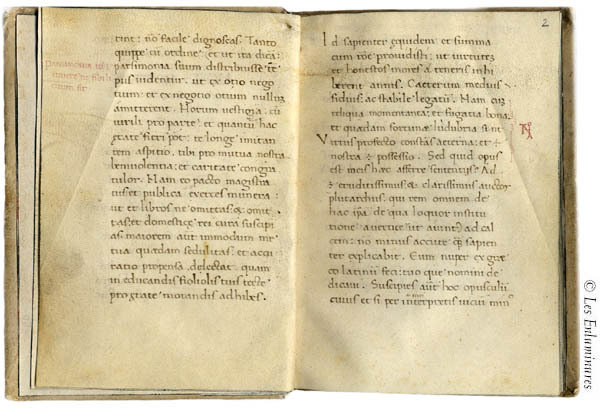 tint: no facile dignoscas. Tanto
quippe cū ordine: et ut ita dicā:
patrimonia suum distribuisse tē
pus uidentur. ut ex otio nego
tium: et ex negotio otium nullū
amitterent. Horum uestigia. cū
uirili pro parte et quantū hac
etate fieri pōt: te longe imitan
tem aspitio. tibi pro mutua nostra
beniuolentia: et caritate congra
tulor. Nam eo pacto magistra
tus et publica exerces munera:
ut et libros nō omittas: & omit
tas. et domesticę rei cura suscip
as. maiorem aūt immodum me
tua quędam sedulitas: et accu
ratio propensā delectat. quam
in educandis filiolis tuis recte
pro etate motandis adhibes.
2
Id sapienter equidem et summa
cum rōne prouidisti: ut uirtutes
et honestos mores a teneris imbi
berent annis. Caeterum medius
fidius ac stabile legatū. Nam cūq
reliqua momentanea: et fugatia bona
et quędam fortunae ludibria sint
Virtus profecto constās aeterna: et
nostra possessio. Sed quid opus
est meis haec afferre sententiis? Ad
eruditissimus & clarissimus auctor
plutarchus. qui rem omnem de
hac ipā. de qua loquor institu
tione auertice (ut aiunt) ad cal
cem: no minus accurate ꝙ sapien
ter explicabit. Eum nuper ex grę
co latinū feci: tuoque nomini de
dicaui. Suscipies aūt hoc opusculū
cuius et si per interpretis uicium minᵒ
© Les Enluminures